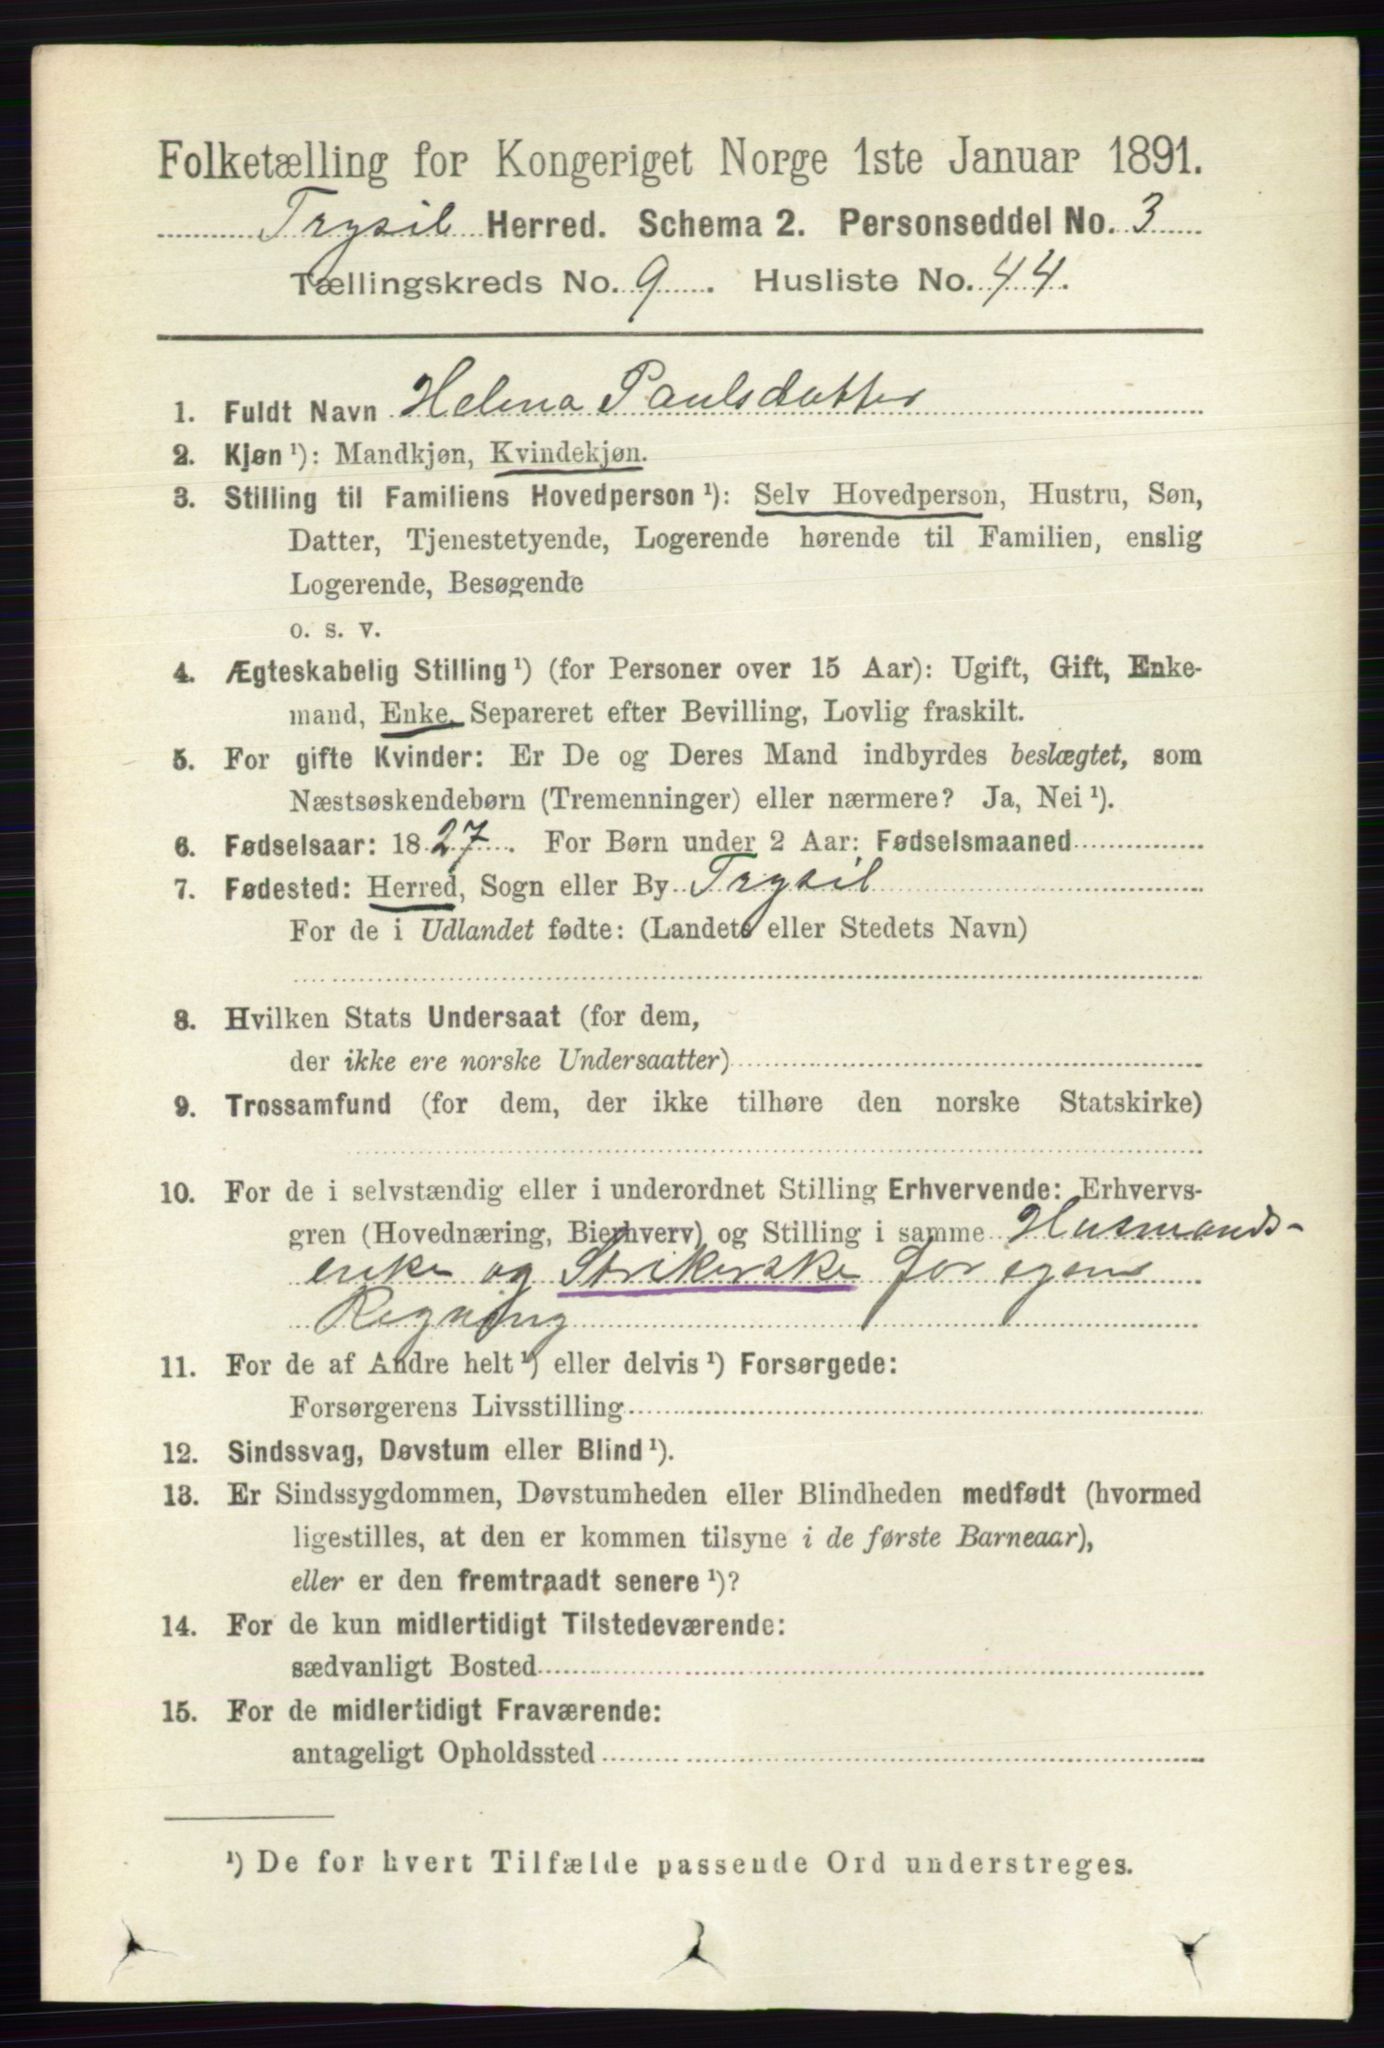 Folketælling for Kongeriget Norge 1ste Januar 1891.
Trysil Herred. Schema 2. Personseddel No. 3
Tællingskreds No. 9. Husliste No. 44.
1. Fuldt Navn Helena Paulsdatter
2. Kjøn ¹): Mandkjøn, Kvindekjøn.
3. Stilling til Familiens Hovedperson ¹): Selv Hovedperson, Hustru, Søn,
Datter, Tjenestetyende, Logerende hørende til Familien, enslig
Logerende, Besøgende
o. s. v.
4. Ægteskabelig Stilling ¹) (for Personer over 15 Aar): Ugift, Gift, Enke-
mand, Enke, Separeret efter Bevilling, Lovlig fraskilt.
5. For gifte Kvinder: Er De og Deres Mand indbyrdes beslægtet, som
Næstsøskendebørn (Tremenninger) eller nærmere? Ja, Nei ¹).
6. Fødselsaar: 1827. For Børn under 2 Aar: Fødselsmaaned
7. Fødested: Herred, Sogn eller By Trysil
For de i Udlandet fødte: (Landets eller Stedets Navn)
8. Hvilken Stats Undersaat (for dem,
der ikke ere norske Undersaatter)
9. Trossamfund (for dem, der ikke tilhøre den norske Statskirke)
10. For de i selvstændig eller i underordnet Stilling Erhvervende: Erhvervs-
gren (Hovednæring, Bierhverv) og Stilling i samme Husmands-
enke og Strikerske for egen
Regning
11. For de af Andre helt ¹) eller delvis ¹) Forsørgede:
Forsørgerens Livsstilling
12. Sindssvag, Døvstum eller Blind ¹).
13. Er Sindssygdommen, Døvstumheden eller Blindheden medfødt (hvormed
ligestilles, at den er kommen tilsyne i de første Barneaar),
eller er den fremtraadt senere ¹)?
14. For de kun midlertidigt Tilstedeværende:
sædvanligt Bosted
15. For de midlertidigt Fraværende:
antageligt Opholdssted
¹) De for hvert Tilfælde passende Ord understreges.